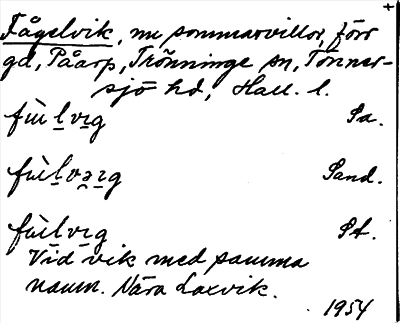 Fågelvik, nu sommarvillor, förr
gd, Påarp, Trönninge sn, Tönner-
sjö hd, Hall. l.
Sa.
Sand.
St.
Vid vik med samma
namn. Nära Laxvik.
1954